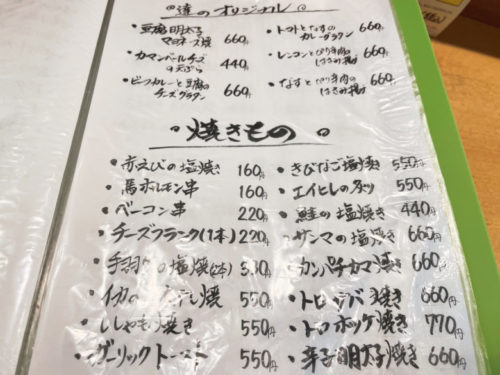 達のオリジナル
・豆腐明太子
マヨネーズ焼 660円
・カマンベールチーズ
の天ぷら 440円
・ビーフカレーと豆腐の
チーズグラタン 660円
・トマトとなすの
カレーグラタン 660円
・レンコンとぴり辛肉の
はさみ揚げ 660円
・なすとぴり辛肉の
はさみ揚げ 660円
焼きもの
・赤えびの塩焼き 160円
・馬ホルモン串 160円
・ベーコン串 220円
・チーズフランク(1本) 220円
・手羽先の塩焼き(2本) 330円
・イカの 焼 550円
・ししゃも焼き 550円
・ガーリックトースト 550円
・きびなご塩焼き 550円
・エイヒレの炙り 550円
・鮭の塩焼き 440円
・サンマの塩焼き 660円
・カンパチカマ焼き 660円
・トロサバ焼き 660円
・トロホッケ焼き 770円
・辛子明太子焼き 660円